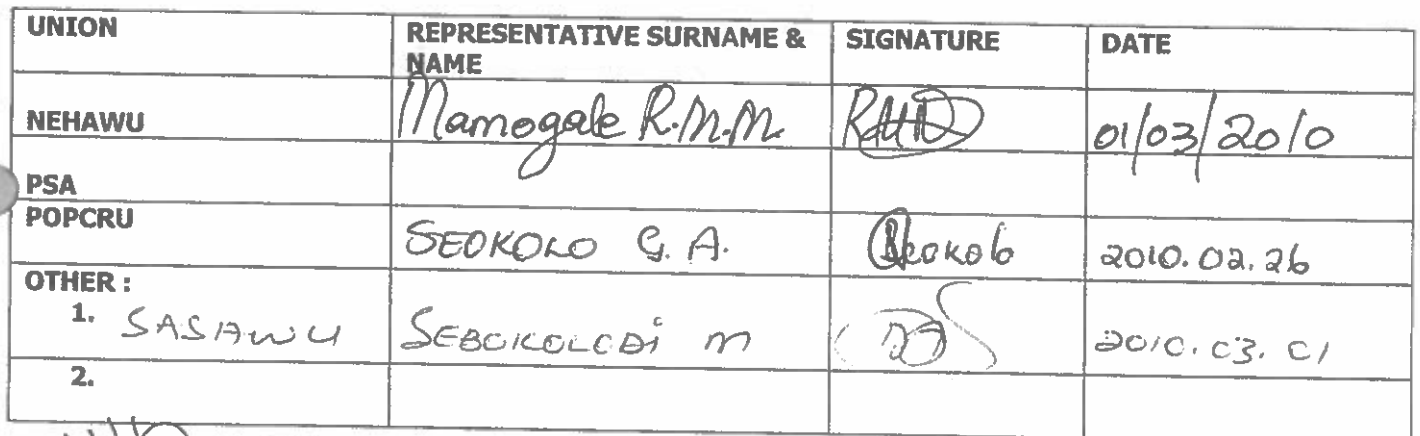 UNION REPRESENTATIVE SURNAME & NAME SIGNATURE DATE
NEHAWU Mamogale R.M.M. 01/03/2010
PSA
POPCRU SEOKOLO G. A. Seokolo 2010.02.26
OTHER :
1. SASAWU SEBOKOLODI M 2010.03.01
2.